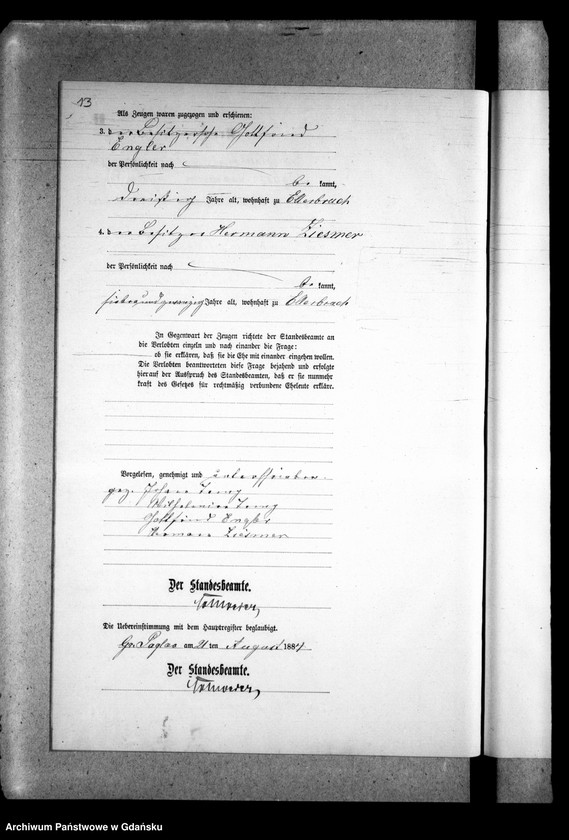 13
Als Zeugen waren zugezogen und erschienen:
3. der Besitzer Gottfried
Engler
der Persönlichkeit nach
be kannt,
dreißig Jahre alt, wohnhaft zu Ellerbruch
4. der Besitzer Hermann Ziesmer
der Persönlichkeit nach
be kannt,
siebenundzwanzig Jahre alt, wohnhaft zu Ellerbruch
In Gegenwart der Zeugen richtete der Standesbeamte an
die Verlobten einzeln und nach einander die Frage:
ob sie erklären, daß sie die Ehe mit einander eingehen wollen.
Die Verlobten beantworteten diese Frage bejahend und erfolgte
hierauf der Ausspruch des Standesbeamten, daß er sie nunmehr
kraft des Gesetzes für rechtmäßig verbundene Eheleute erkläre.
Vorgelesen, genehmigt und unterschrieben
gez. Johann
Wilhelmine
Gottfried Engler
Hermann Ziesmer
Der Standesbeamte.
Die Uebereinstimmung mit dem Hauptregister beglaubigt.
Gr. Paglau am 21 ten August 1884
Der Standesbeamte.
Archiwum Państwowe w Gdańsku